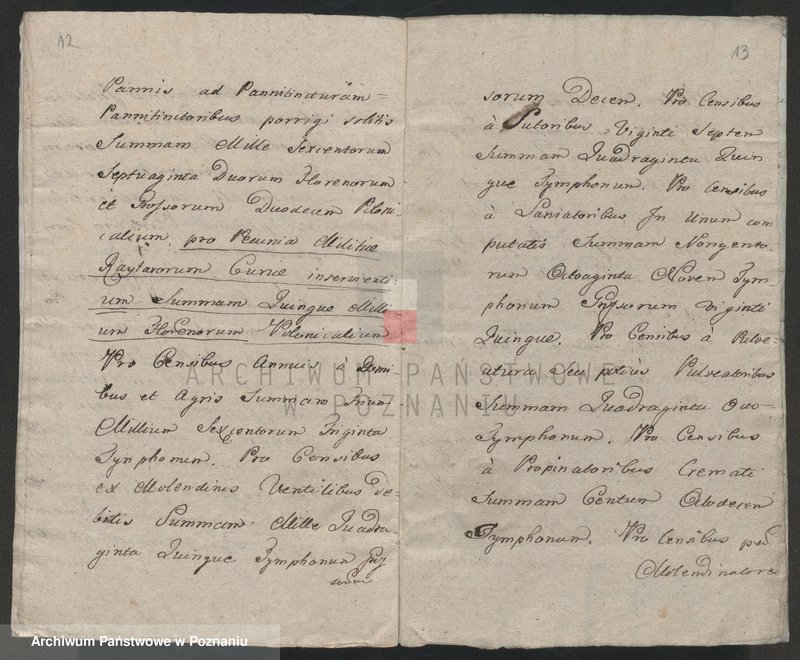 12
Pannis ad Pannitincturam=
Pannitinctoribus porrigi solitis
Summam Mille Sexcentorum
Septuaginta Duorum Florenorum
et Grossorum Duodecem Poloni-
calium, pro Pecunia Militiae
Raytarorum Curiae inservienti-
um Summam Quinque Milli-
um Florenorum Polonicalium
Pro Censibus Annuis à Domi-
bus et Agris Summam Trium
Millium Sexcentorum Triginta
Tymphonum. Pro Censibus
ex Molendinis Ventilibus De-
bitis Summam Mille Quadra-
ginta Quinque Tymphonum Gros
sorum
13
sorum Decem. Pro Censibus
à Sutoribus Viginti Septem
Summam Quadraginta Quin
que Tymphonum. Pro Censibus
à Laniatoribus In Unum com
putatis Summam Nongento-
rum Octoaginta Novem Tym-
phonum Grossorum Viginti
Quinque. Pro Censibus à
Seu potius
Summam Quadraginta Octo-
Tymphonum. Pro Censibus
à Propinatoribus Cremati
Summam Centum Octodecem
Tymphonum. Pro Censibus per
Molendinatores
ARCHIWUM PAŃSTWOWE
W POZNANIU
Archiwum Państwowe w Poznaniu